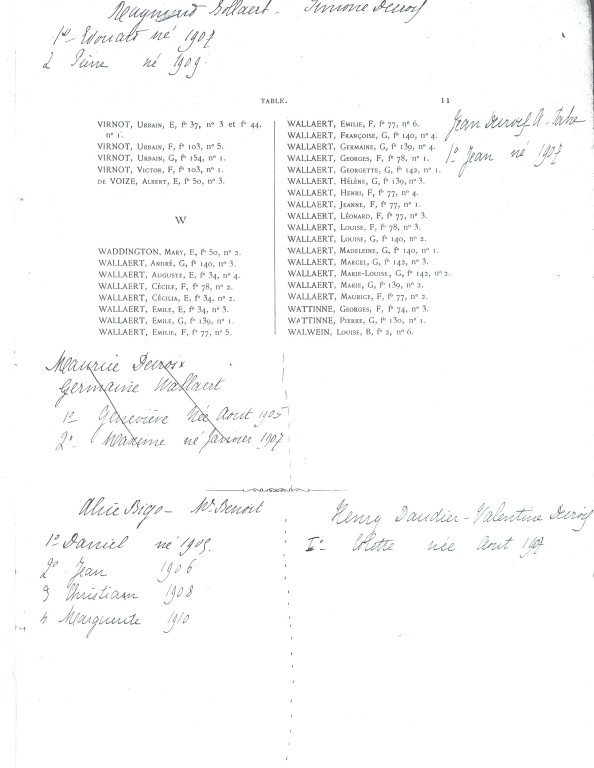 Raymond Gollaert - Simone Decroix
1º Edouard né 1907
2 Pierre né 1909
TABLE. 11
VIRNOT, Urbain, E, fº 37, nº 3 et fº 44,
nº 1.
VIRNOT, Urbain, F, fº 103, nº 5.
VIRNOT, Urbain, G, fº 154, nº 1.
VIRNOT, Victor, F, fº 103, nº 1.
de VOIZE, Albert, E, fº 50, nº 3.
W
WADDINGTON, Mary, E, fº 50, nº 2.
WALLAERT, André, G, fº 140, nº 3.
WALLAERT, Auguste, E, fº 34, nº 4.
WALLAERT, Cécile, F, fº 78, nº 2.
WALLAERT, Cécilia, E, fº 34, nº 2.
WALLAERT, Emile, E, fº 34, nº 3.
WALLAERT, Emile, G, fº 139, nº 1.
WALLAERT, Emilie, F, fº 77, nº 5.
WALLAERT, Emilie, F, fº 77, nº 6.
WALLAERT, Françoise, G, fº 140, nº 4.
WALLAERT, Germaine, G, fº 139, nº 4.
WALLAERT, Georges, F, fº 78, nº 1.
WALLAERT, Georgette, G, fº 142, nº 1.
WALLAERT, Hélène, G, fº 139, nº 3.
WALLAERT, Henri, F, fº 77, nº 4.
WALLAERT, Jeanne, F, fº 77, nº 1.
WALLAERT, Léonard, F, fº 77, nº 3.
WALLAERT, Louise, F, fº 78, nº 3.
WALLAERT, Louise, G, fº 140, nº 2.
WALLAERT, Madeleine, G, fº 140, nº 1.
WALLAERT, Marcel, G, fº 142, nº 3.
WALLAERT, Marie-Louise, G, fº 142, nº 2.
WALLAERT, Marie, G, fº 139, nº 2.
WALLAERT, Maurice, F, fº 77, nº 2.
WATTINNE, Georges, F, fº 74, nº 3.
WATTINNE, Pierre, G, fº 130, nº 1.
WALWEIN, Louise, B, fº 2, nº 6.
Jean Decroix A.
1º Jean né 1907
Maurice Decroix
Germaine Wallaert
1º Geneviève Née Aout 1905
2º Maxime né Janvier 1907
Alice Bigo - Mr Benoit
1º Daniel né 1905
2º Jean 1906
3 Christiam 1908
4 Marguerite 1910
Henry Daudier - Valentine Decroix
Iº Colette née Aout 1907